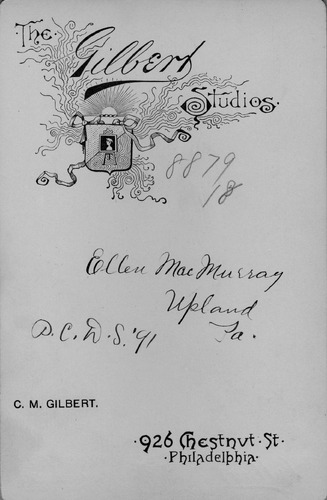 The Gilbert
Studios.
8879
18
Ellen MacMurray
Upland
P.C.D.S.'91 Pa.
C. M. GILBERT.
·926 Chestnut·St·
·Philadelphia·